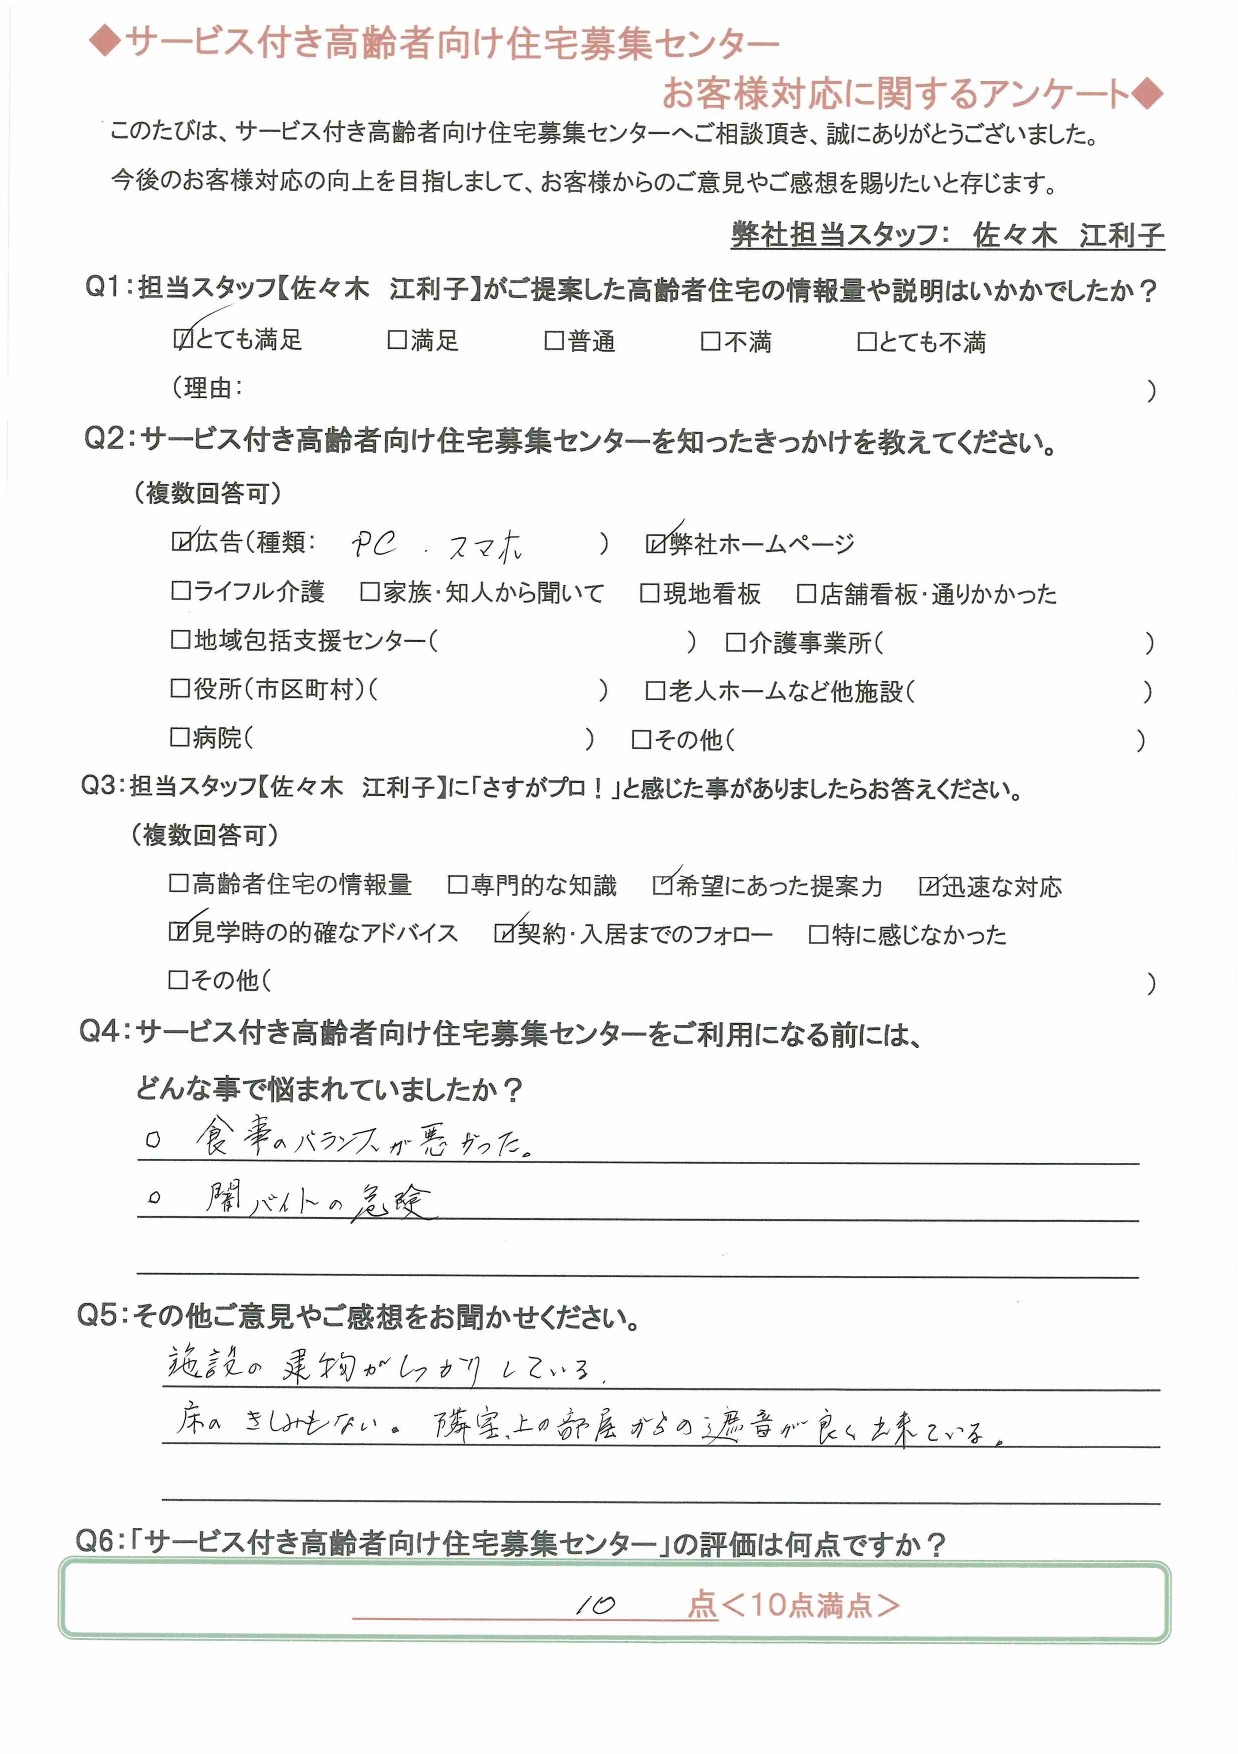 ◆サービス付き高齢者向け住宅募集センター
お客様対応に関するアンケート◆
このたびは、サービス付き高齢者向け住宅募集センターへご相談頂き、誠にありがとうございました。
今後のお客様対応の向上を目指しまして、お客様からのご意見やご感想を賜りたいと存じます。
弊社担当スタッフ： 佐々木 江利子
Q1：担当スタッフ【佐々木 江利子】がご提案した高齢者住宅の情報量や説明はいかかでしたか？
☑とても満足 □満足 □普通 □不満 □とても不満
（理由： ）
Q2：サービス付き高齢者向け住宅募集センターを知ったきっかけを教えてください。
（複数回答可）
☑広告（種類： PC . スマホ ） ☑弊社ホームページ
□ライフル介護 □家族・知人から聞いて □現地看板 □店舗看板・通りかかった
□地域包括支援センター（ ） □介護事業所（ ）
□役所（市区町村）（ ） □老人ホームなど他施設（ ）
□病院（ ） □その他（ ）
Q3：担当スタッフ【佐々木 江利子】に「さすがプロ！」と感じた事がありましたらお答えください。
（複数回答可）
□高齢者住宅の情報量 □専門的な知識 ☑希望にあった提案力 ☑迅速な対応
☑見学時の的確なアドバイス ☑契約・入居までのフォロー □特に感じなかった
□その他（ ）
Q4：サービス付き高齢者向け住宅募集センターをご利用になる前には、
どんな事で悩まれていましたか？
○ 食事のバランスが悪かった。
○ 闇バイトの危険
Q5：その他ご意見やご感想をお聞かせください。
施設の建物がしっかりしている.
床のきしみもない。隣室、上の部屋からの遮音が良く出来ている。
Q6：「サービス付き高齢者向け住宅募集センター」の評価は何点ですか？
10 点＜10点満点＞